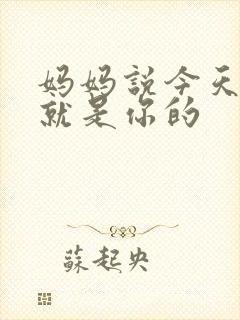 妈妈説今天
就是你的
蘇起央